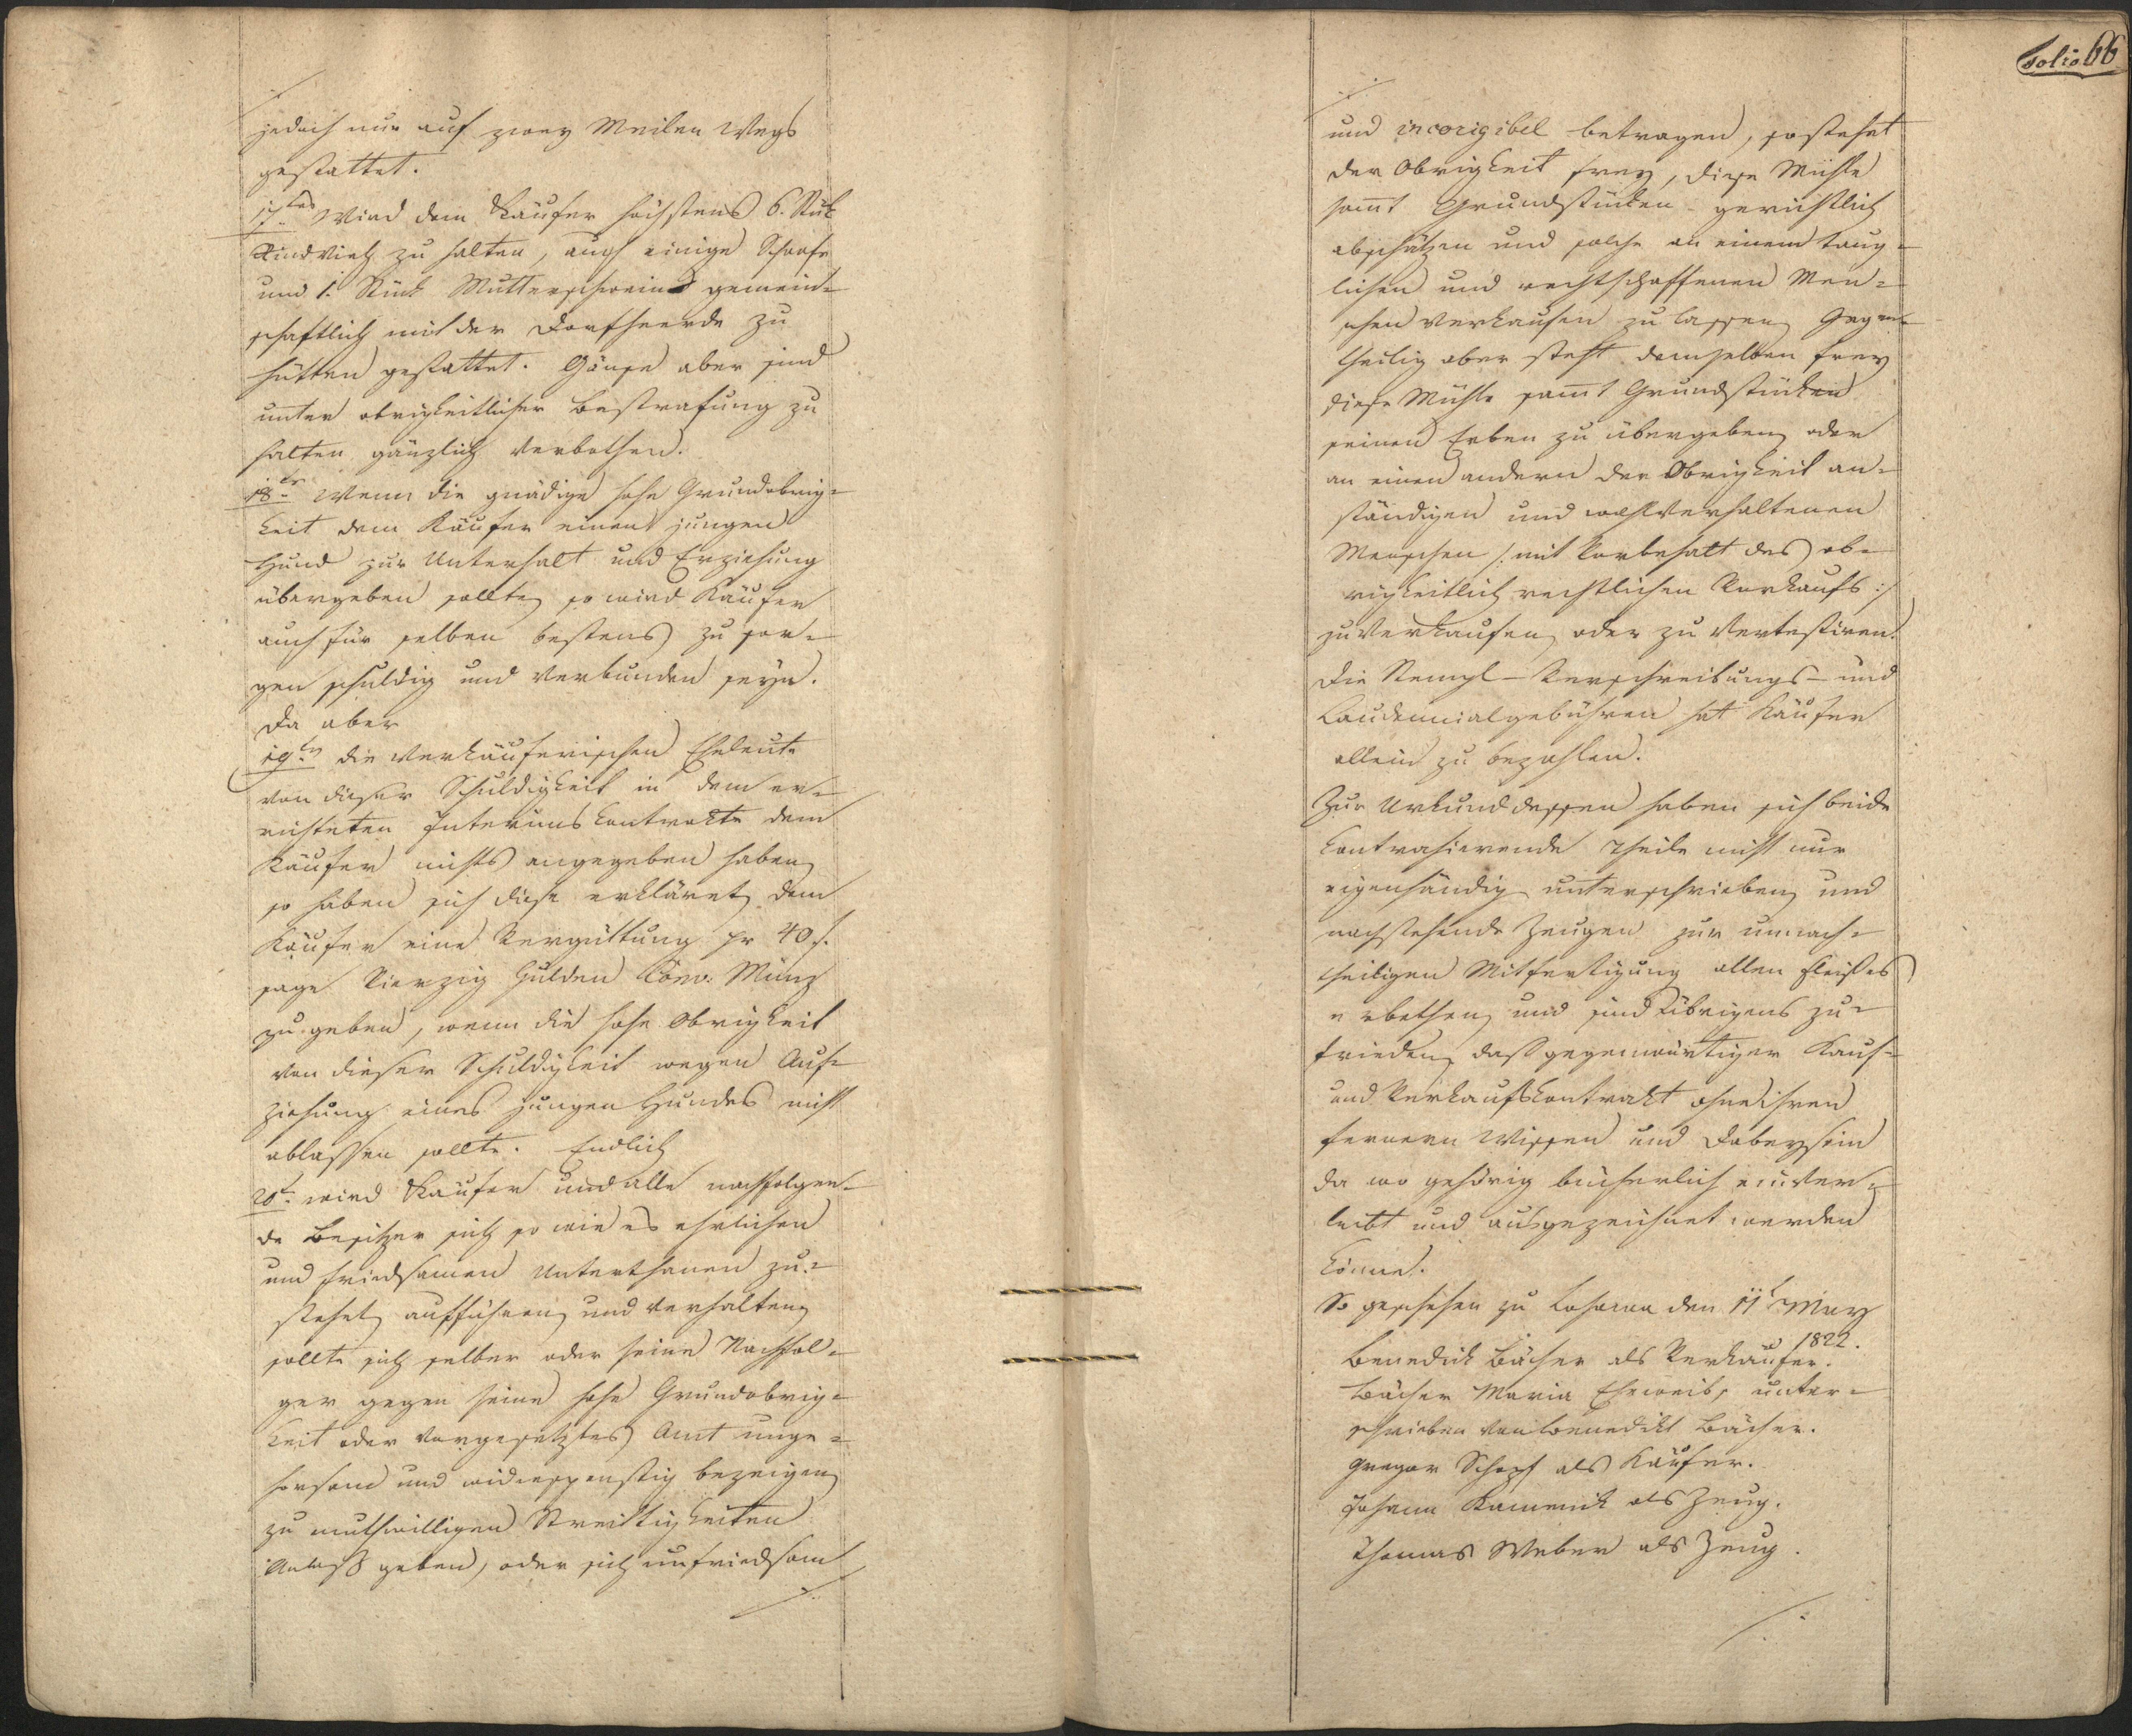 jedoch nur auf zwey Meilen Wegs
gestattet.
17tens Wird dem Käufer höchstens 6. Stük
Rindvieh zu halten, auch einige Schaafe
und 1. Stück Mutterschwein gemein=
schaftlich mit der Dorfheerde zu
hütten gestattet. Gänse aber sind
unter obrigkeitlicher Bestrafung zu
halten gänzlich verbothen.
18tens Wenn die gnädige hohe Grundobrig=
keit dem Käufer einen jungen
Hund zur Unterhalt und Erziehung
übergeben sollte, so wird Käufer
auch für selben bestens zu sor=
gen schuldig und verbunden seyn.
Da aber
19tens die verkäuferischen Eheleute
von dieser Schuldigkeit in dem er=
richteten Interimskontrakte dem
Käufer nichts angegeben haben,
so haben sich diese erkläret, dem
Käufer eine Vergüttung pr 40 f.
sage Vierzig Gulden Conv. Münz
zu geben, wenn die hohe Obrigkeit
von dieser Schuldigkeit wegen Auf=
ziehung eines jungen Hundes nicht
ablassen sollte. Endlich
20t. wird Käufer und alle nachfolgen=
de Besitzer sich so wie es ehrlichen
und friedsamen Unterthanen zu=
stehet, aufführen, und verhalten,
sollte sich selber oder seine Nachfol=
ger gegen seine hohe Grundobrig=
keit oder vorgesetztes Amt unge=
horsam und widerspenstig bezeigen,
zu muthwilligen Streittigkeiten
Anlaß geben, oder sich unfriedsam
Folio 66
und incorigibel betragen, so stehet
der Obrigkeit frey, diese Mühle
samt Grundstücken gerichtlich
abschätzen und solche an einem taug=
lichen und rechtschaffenen Men=
schen verkaufen zu lassen, Gegen=
theilig aber steht demselben frey
diese Mühle samt Grundstücken
seinen Erben zu übergeben, oder
an einen andern der Obrigkeit an=
ständigen und wohlverhaltenen
Menschen /: mit Vorbehalt des ob=
rigkeitlich rechtlichen Vorkaufs :/
zu verkaufen, oder zu vertestiren.
Die Stempl- Verschreibungs- und
Laudemialgebühren hat Käufer
allein zu bezahlen.
Zur Urkund dessen haben sich beide
kontrahierende Theile nicht nur
eigenhändig unterschrieben, und
nachstehende Zeugen zur unnach=
theiligen Mitfertigung allen Fleißes
erbethen, und sind übrigens zu=
frieden, daß gegenwärtiger Kauf=
und Verkaufskontrakt ohne ihren
fernern Wissen und Dabeysein
da wo gehörig bücherlich einver=
leibt und ausgezeichnet werden
könne.
So geschehen zu Lohowa den 11t May
1822.
Benedick Bächer als Verkäufer.
Bächer Maria Eheweib, unter=
schrieben von Benedikt Bächer.
Gregor Schopf als Käufer.
Johann Kamenik als Zeug.
Thomas Weber als Zeug.